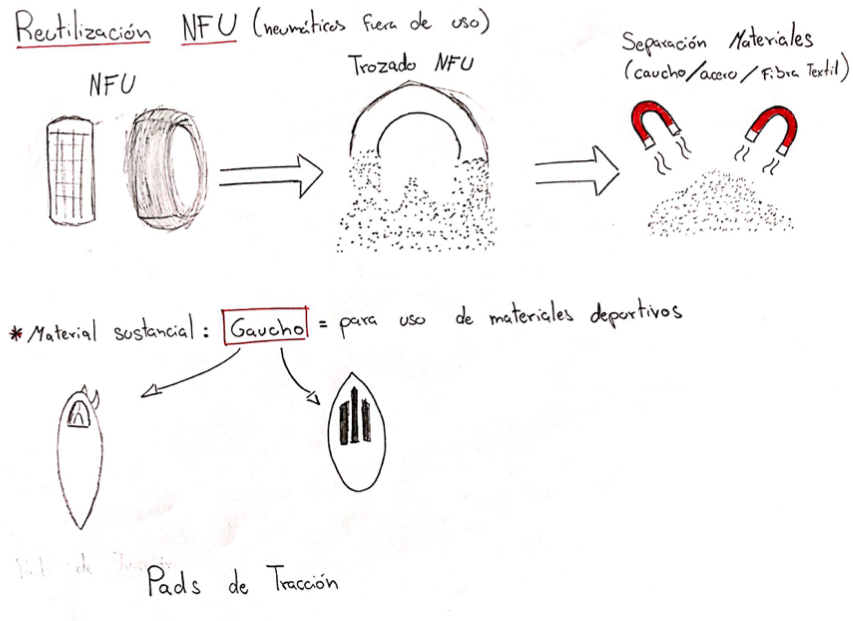 Reutilización NFU (neumáticos fuera de uso)
Separación Materiales
(caucho/acero/Fibra Textil)
Trozado NFU
NFU
*Material sustancial: Gaucho = para uso de materiales deportivos
Pads de Tracción